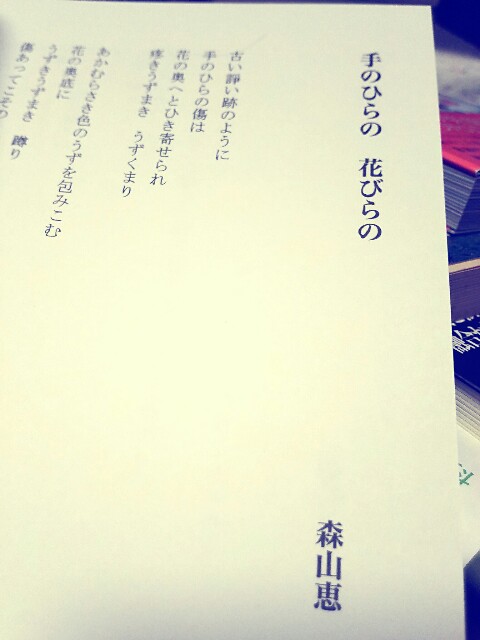 手のひらの　花びらの
森山恵
古い諍い跡のように
手のひらの傷は
花の奥へとひき寄せられ
疼きうずまき　うずくまり
あかむらさき色のうずを包みこむ
花の奥底に
うずきうずまき　蹲り
傷あってこその